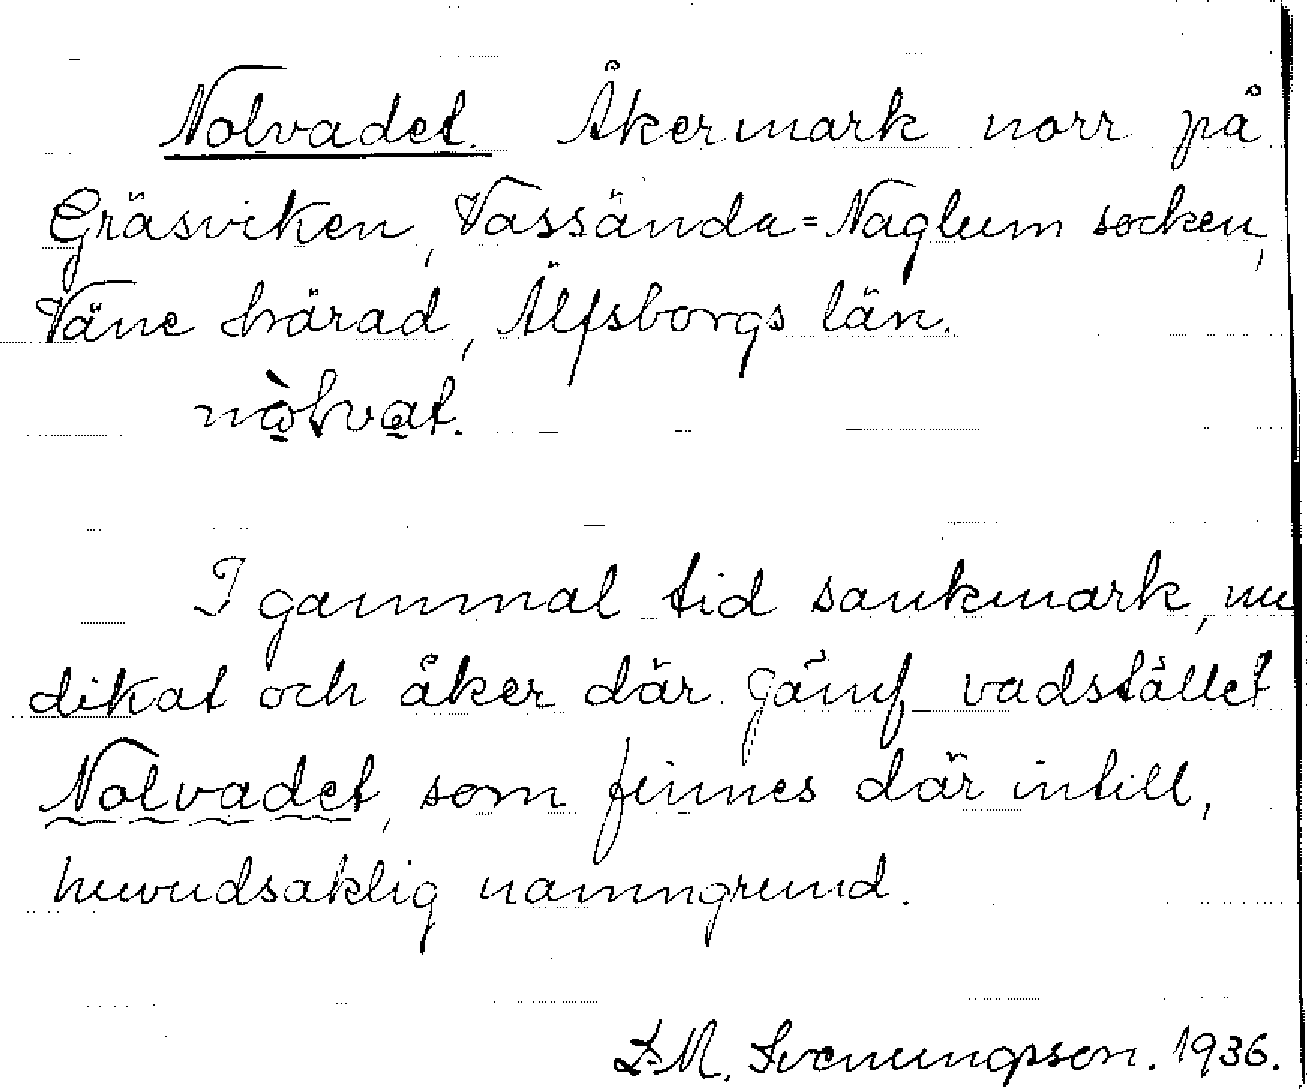 Nolvadet. Åkermark norr på
Gräsviken, Vassända=Naglum socken,
Väne härad, Älfsborgs län.
I gammal tid sankmark, nu
dikat och åker där. Jämf vadstället
Nolvadet, som finnes där intill,
huvudsaklig namngrund.
D.M. Svenungsson. 1936.